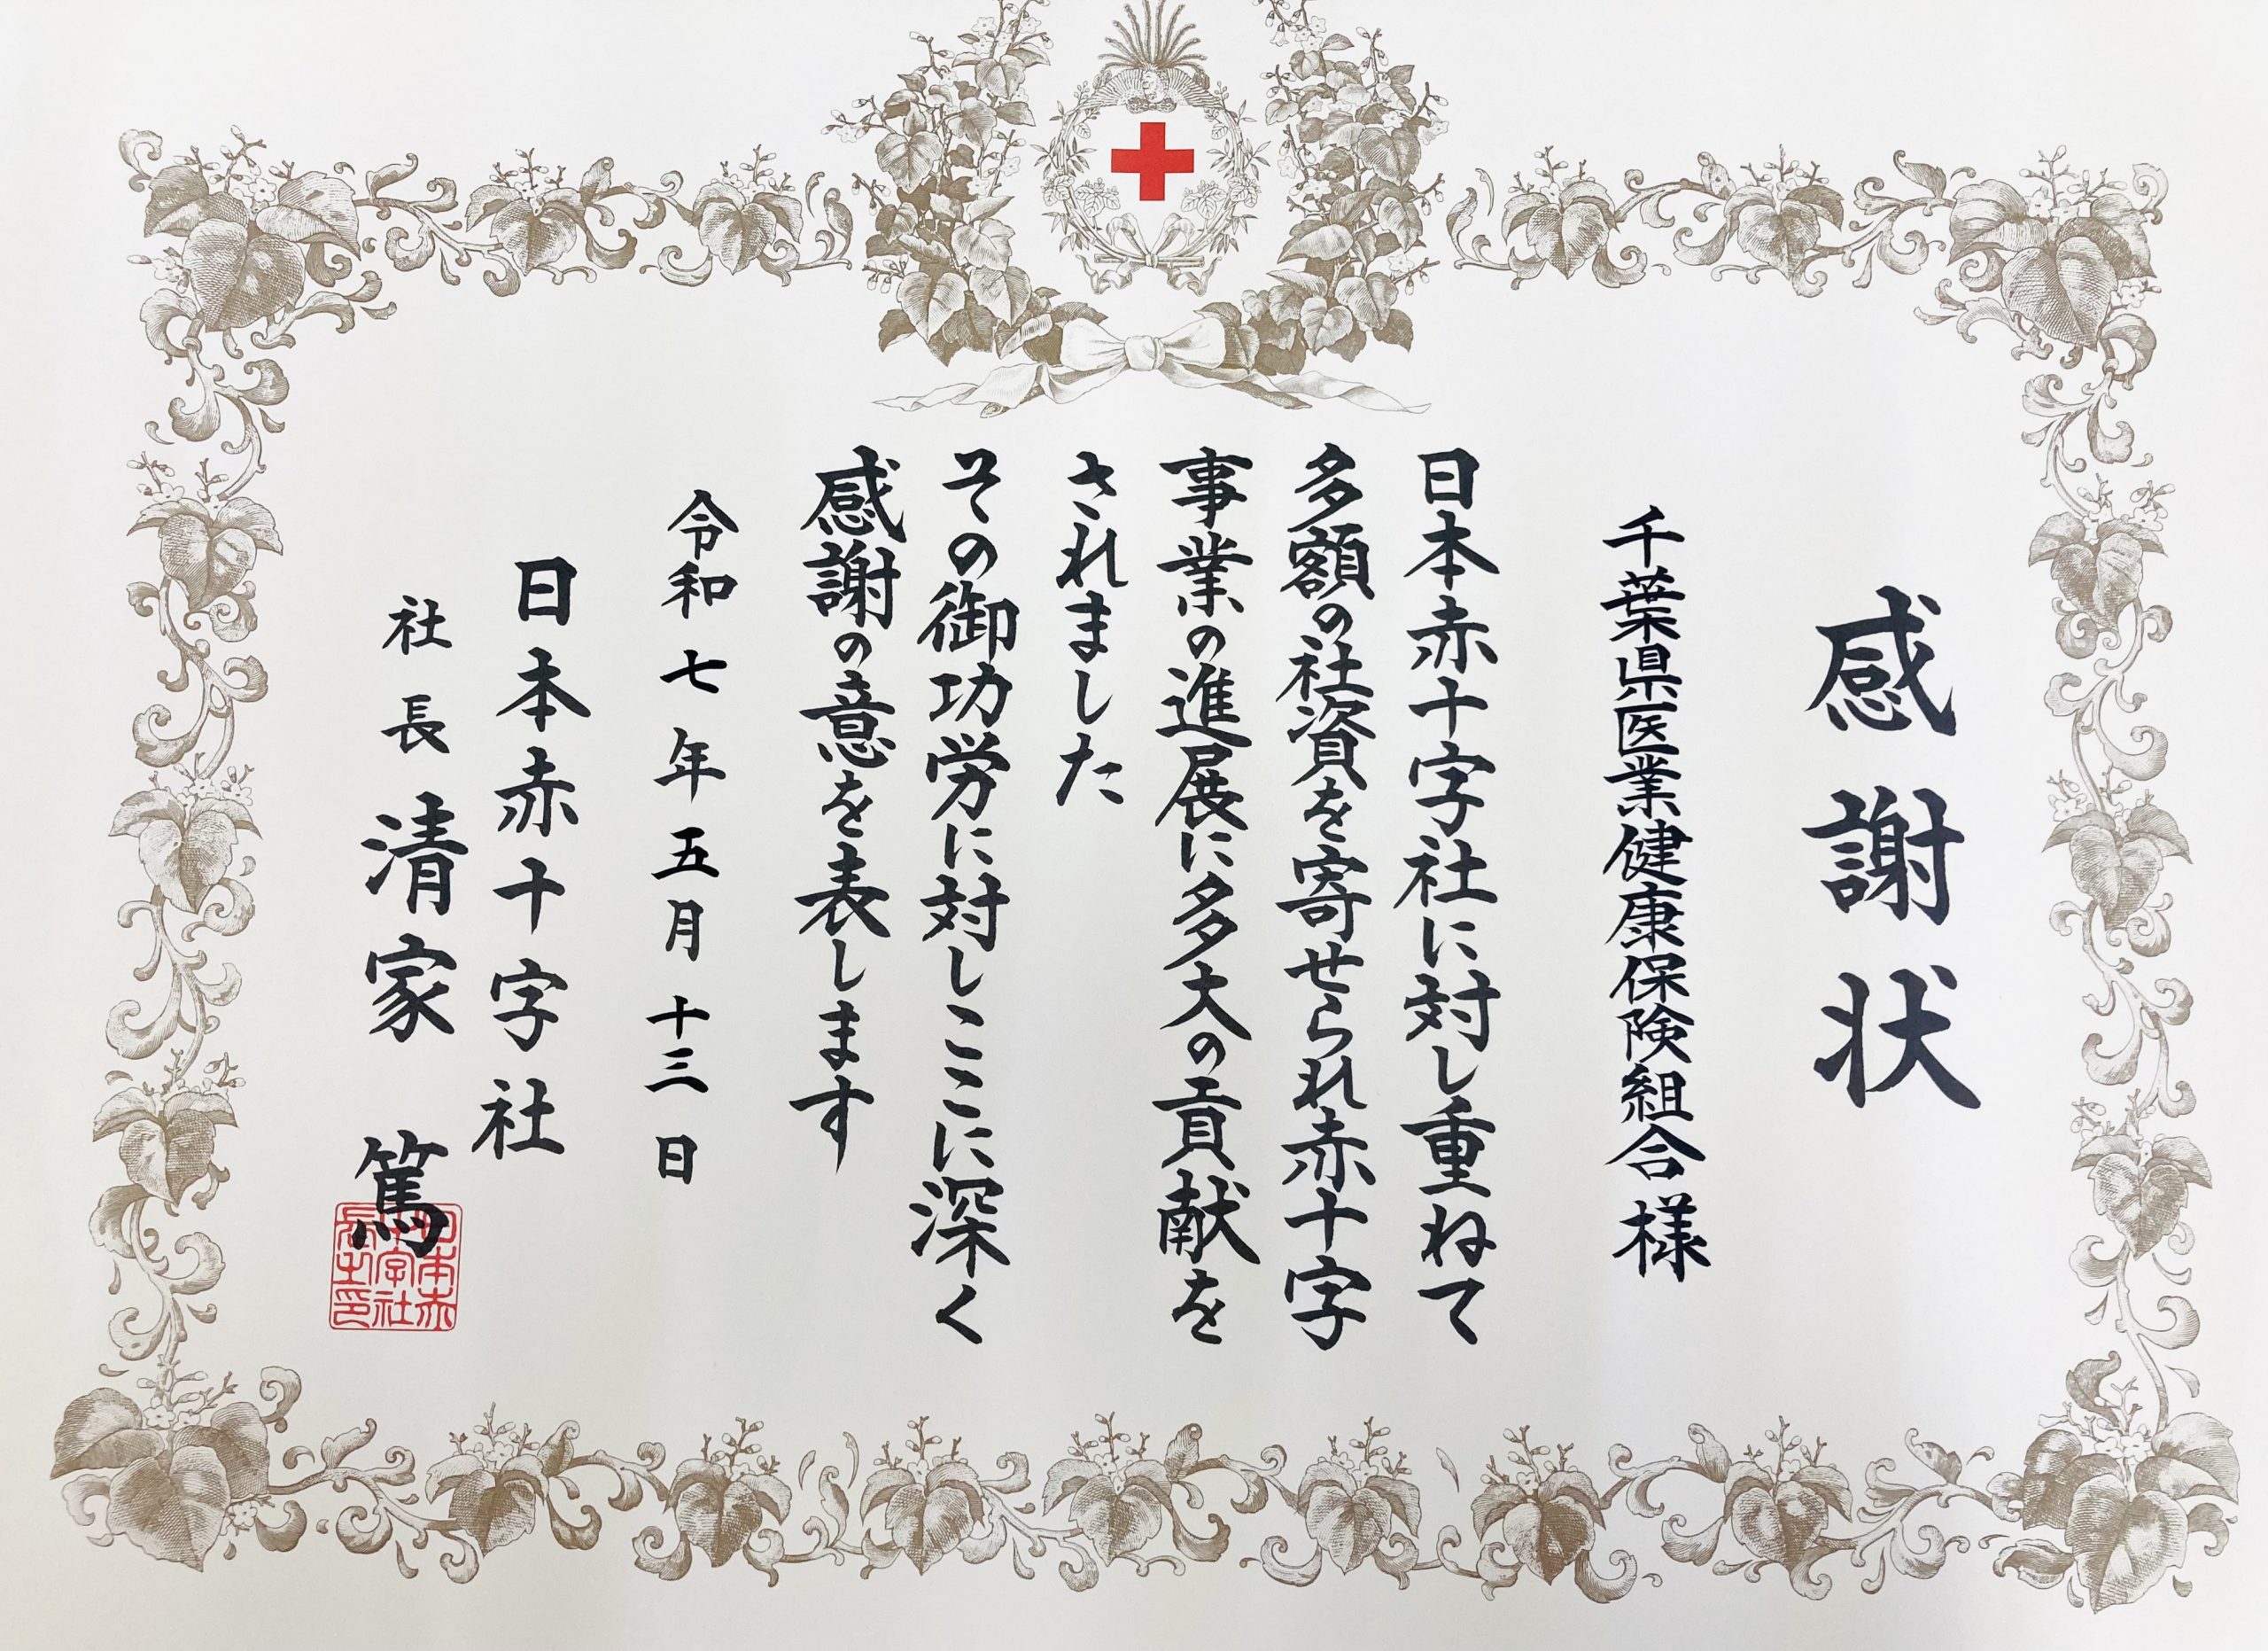 感謝状
千葉県医業健康保険組合様
日本赤十字社に対し重ねて
多額の社資を寄せられ赤十字
事業の進展に多大の貢献を
されました
その御功労に対しここに深く
感謝の意を表します
令和七年五月十三日
日本赤十字社
社長清家篤
日本赤
十字社
長之印